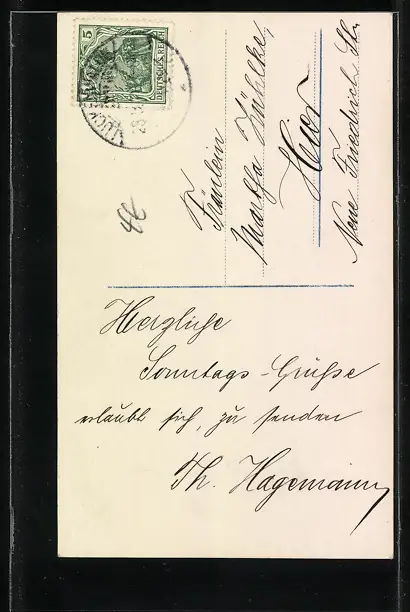 5
DEUTSCHES REICH
Fräulein
Martha Kühlcke,
Hier
Neue Friedrich St.
Herzliche
Sonntags-Grüße
erlaubt sich, zu senden
Th. Hagemann